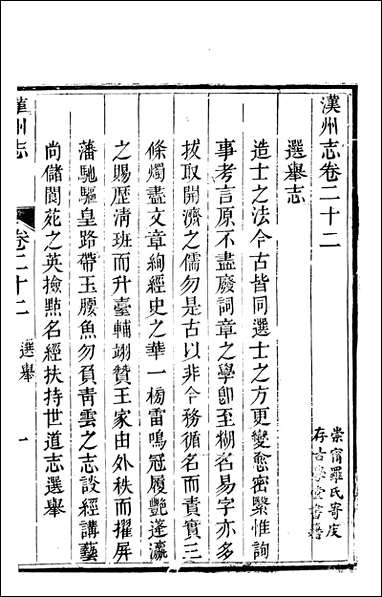 漢州志卷二十二
崇甯羅氏寄庋
存古學堂書籍
選舉志
造士之法今古皆同選士之方更變愈密繄惟詢
事考言原不盡廢詞章之學卽至糊名易字亦多
拔取開濟之儒勿是古以非今務循名而責實三
條燭盡文章絢經史之華一榜雷鳴冠履艷蓬瀛
之賜歴清班而升臺輔翊贊王家由外秩而擢屏
藩馳驅皇路帶玉腰魚勿負靑雲之志談經講藝
尚儲閬苑之英撿㸃名經扶持世道志選舉
漢州志
卷二十二
選舉
一